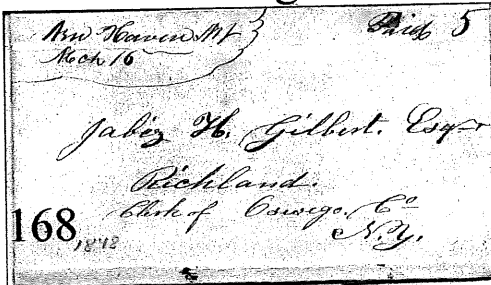 New Haven NY
Mch 16
Paid 5
Jabez H. Gilbert. Esqr
Richland.
Clerk of Oswego. Co
N.Y.
168
1848